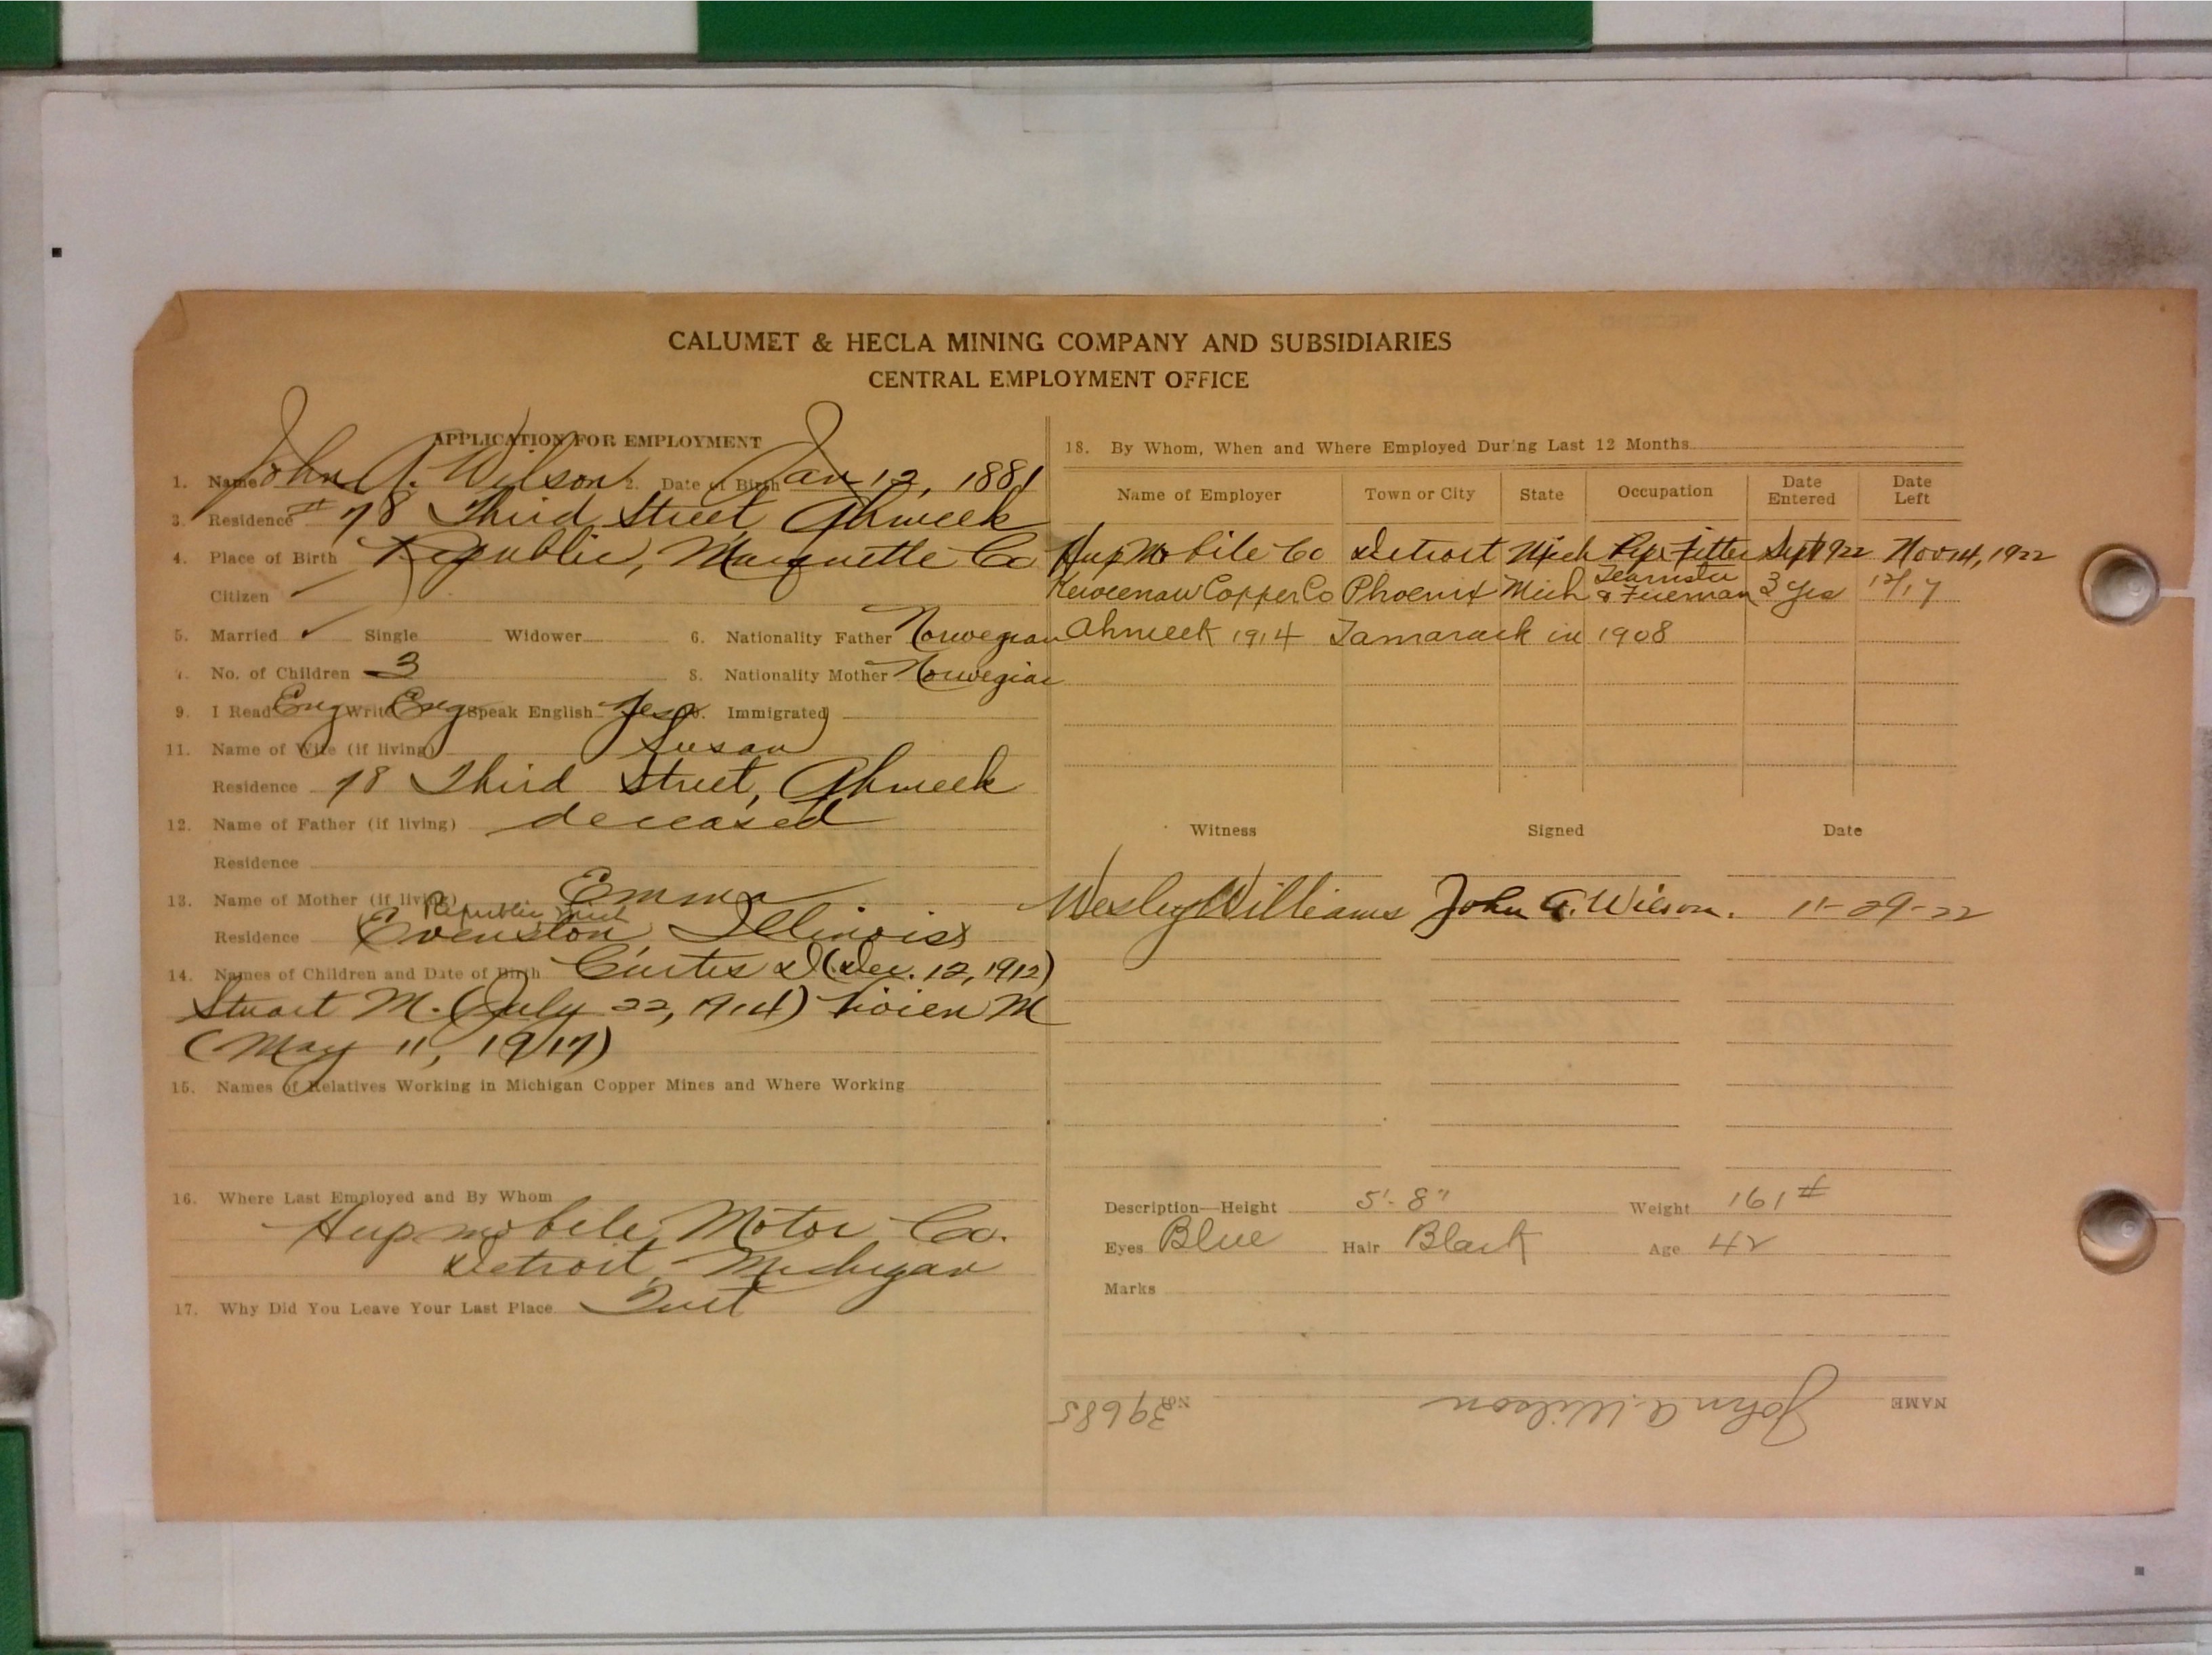 CALUMET & HECLA MINING COMPANY AND SUBSIDIARIES
CENTRAL EMPLOYMENT OFFICE
APPLICATION FOR EMPLOYMENT
1. Name John A. Wilson 2. Date of Birth Jan 12, 1881
3. Residence # 78 Third Street, Ahmeek
4. Place of Birth Republic, Marquette Co
Citizen ✓
5. Married ✓ Single Widower 6. Nationality Father Norwegian
7. No. of Children 3 8. Nationality Mother Norwegian
9. I Read Eng Write Eng Speak English Yes 10. Immigrated
11. Name of Wife (if living) Susan
Residence 78 Third Street, Ahmeek
12. Name of Father (if living) deceased
Residence
13. Name of Mother (if living) Emma
Republic, Mich
Residence (Evenston, Illinois)
14. Names of Children and Date of Birth Curtis D (Dec. 12, 1912)
Stuart M. (July 22, 1914) M
(May 11, 1917)
15. Names of Relatives Working in Michigan Copper Mines and Where Working
16. Where Last Employed and By Whom
Hupmobile Motor Co.
Detroit, Michigan
17. Why Did You Leave Your Last Place Quit
18. By Whom, When and Where Employed During Last 12 Months
Name of Employer Town or City State Occupation Date Entered Date Left
HupMobile Co Detroit Mich Fitter Sept 922 Nov 14, 1922
Keweenaw Copper Co Phoenix Mich Teamster & Fireman 3 yrs 12/17
Ahmeek 1914 Tamarack in 1908
Witness Signed Date
Wesley Williams John A. Wilson. 11-29-22
Description—Height 5'-8" Weight 161#
Eyes Blue Hair Black Age 42
Marks
NAME John A. Wilson No. 39685